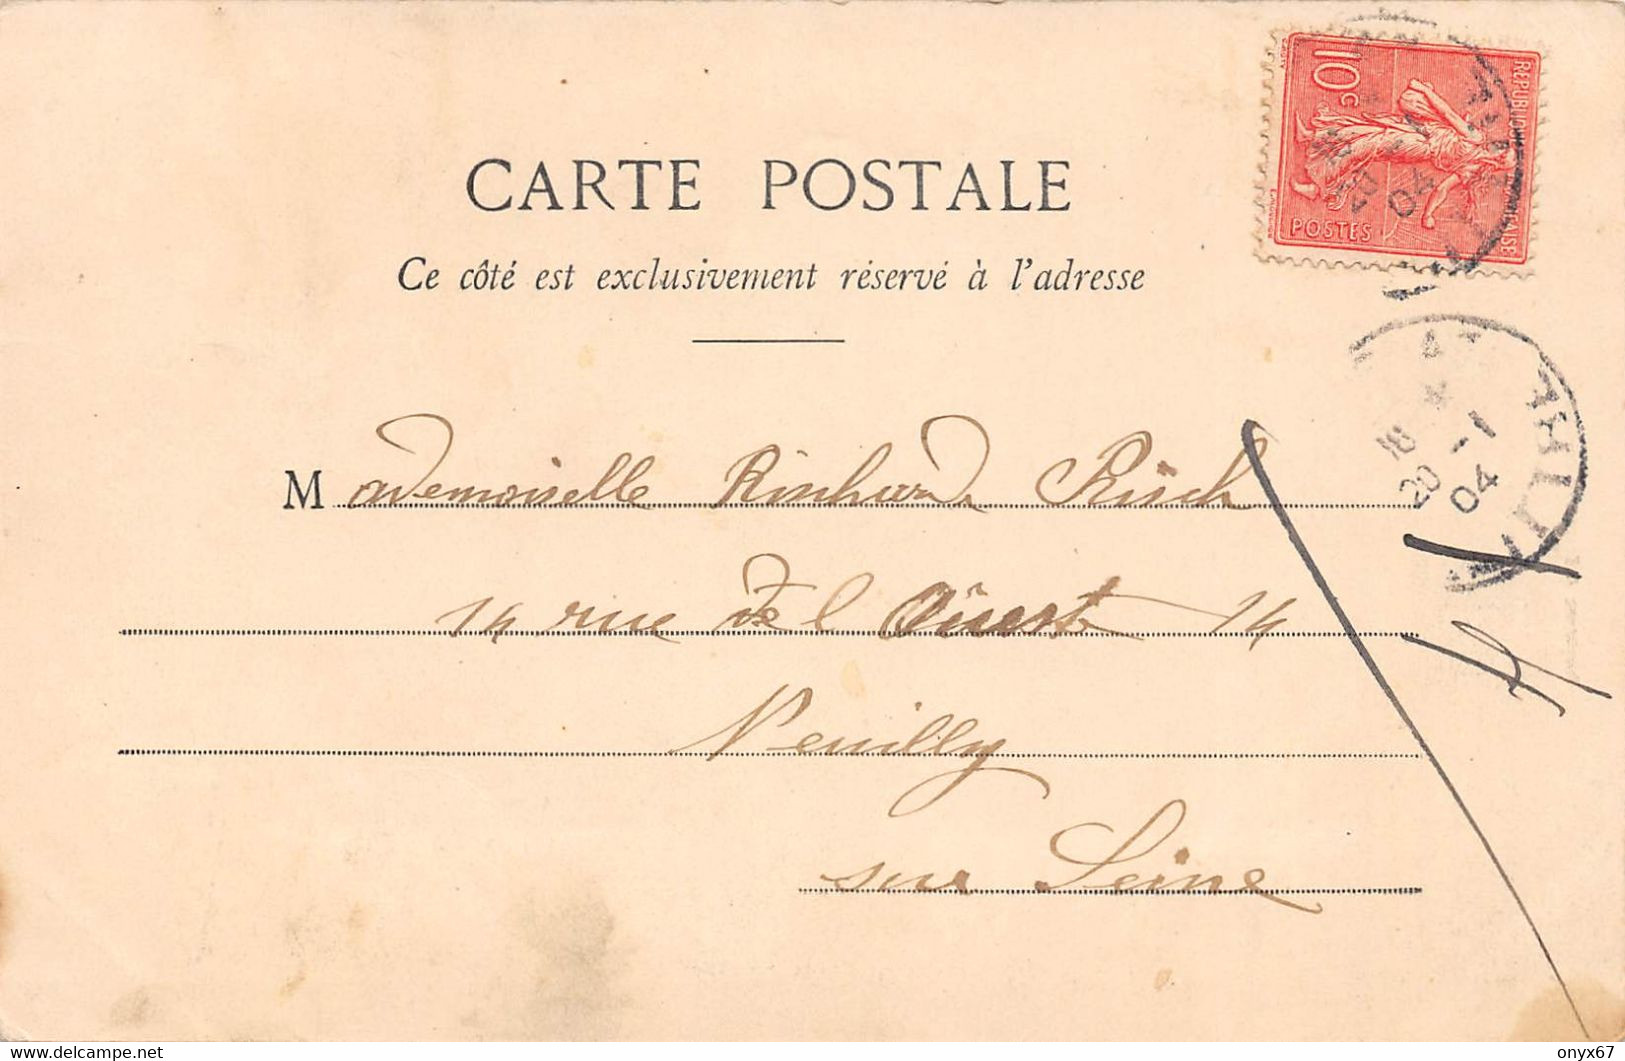 CARTE POSTALE
Ce côté est exclusivement réservé à l'adresse
10c
POSTES
REPUBLIQUE FRANÇAISE
20 -1
04
18
20 -1
04
Mademoiselle Risch
14 rue de l Ouest 14
Neuilly
sur Seine
Delcampe.net
onyx67